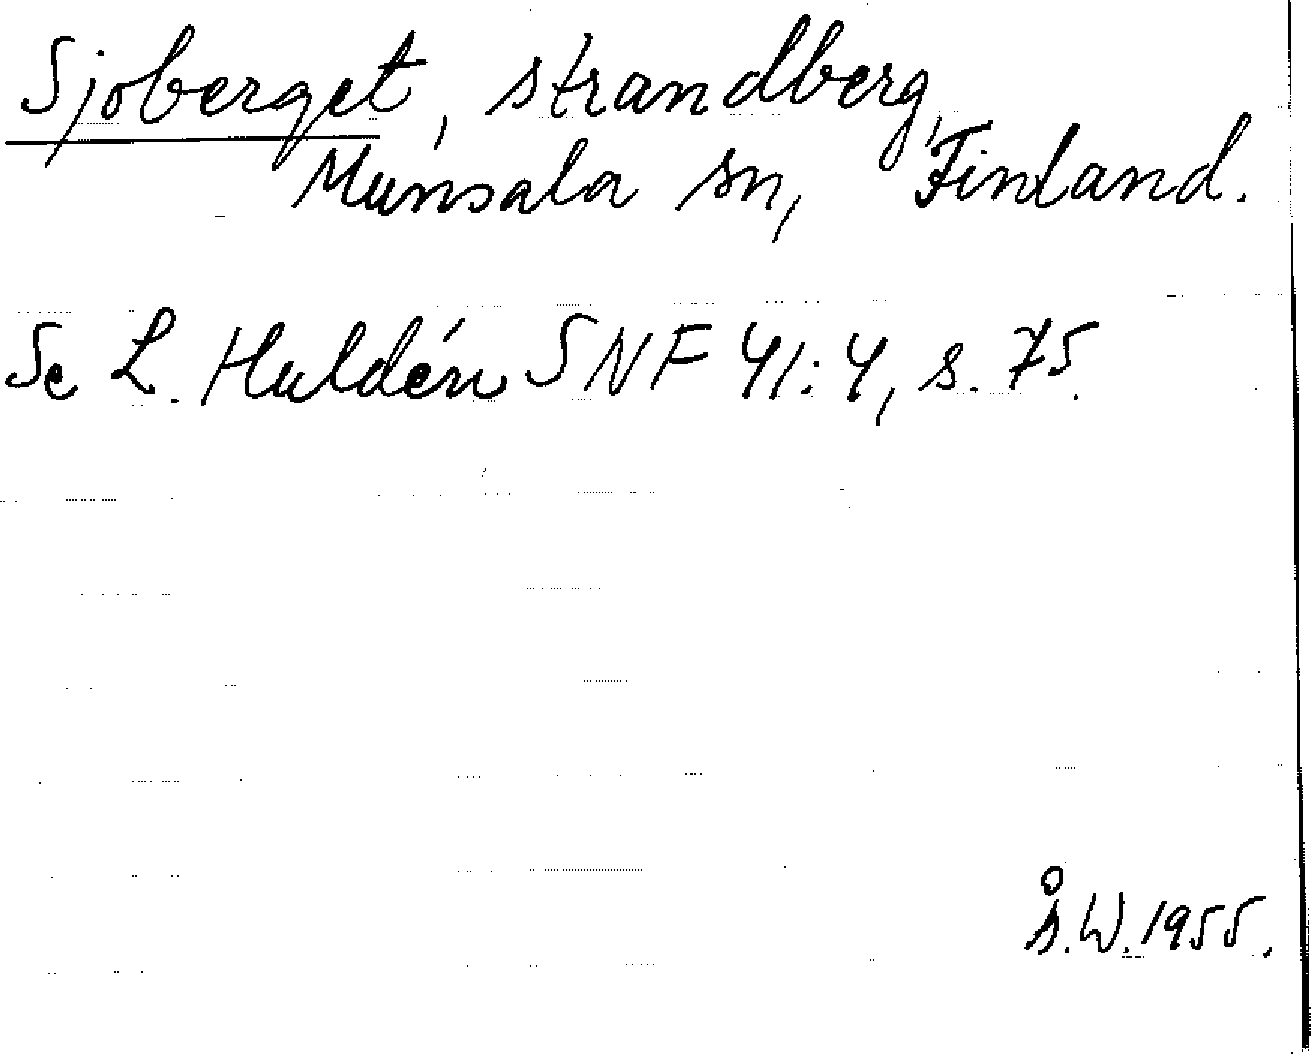 Sjoberget, strandberg,
Munsala sn, Finland.
Se L. Huldén SNF 41:4, s. 75.
Å.W. 1955.